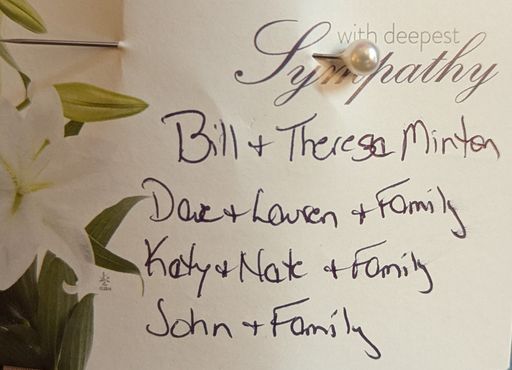 with deepest
Sympathy
Bill + Theresa Minton
Dave + Lauren + Family
Katy + Nate + Family
John + Family